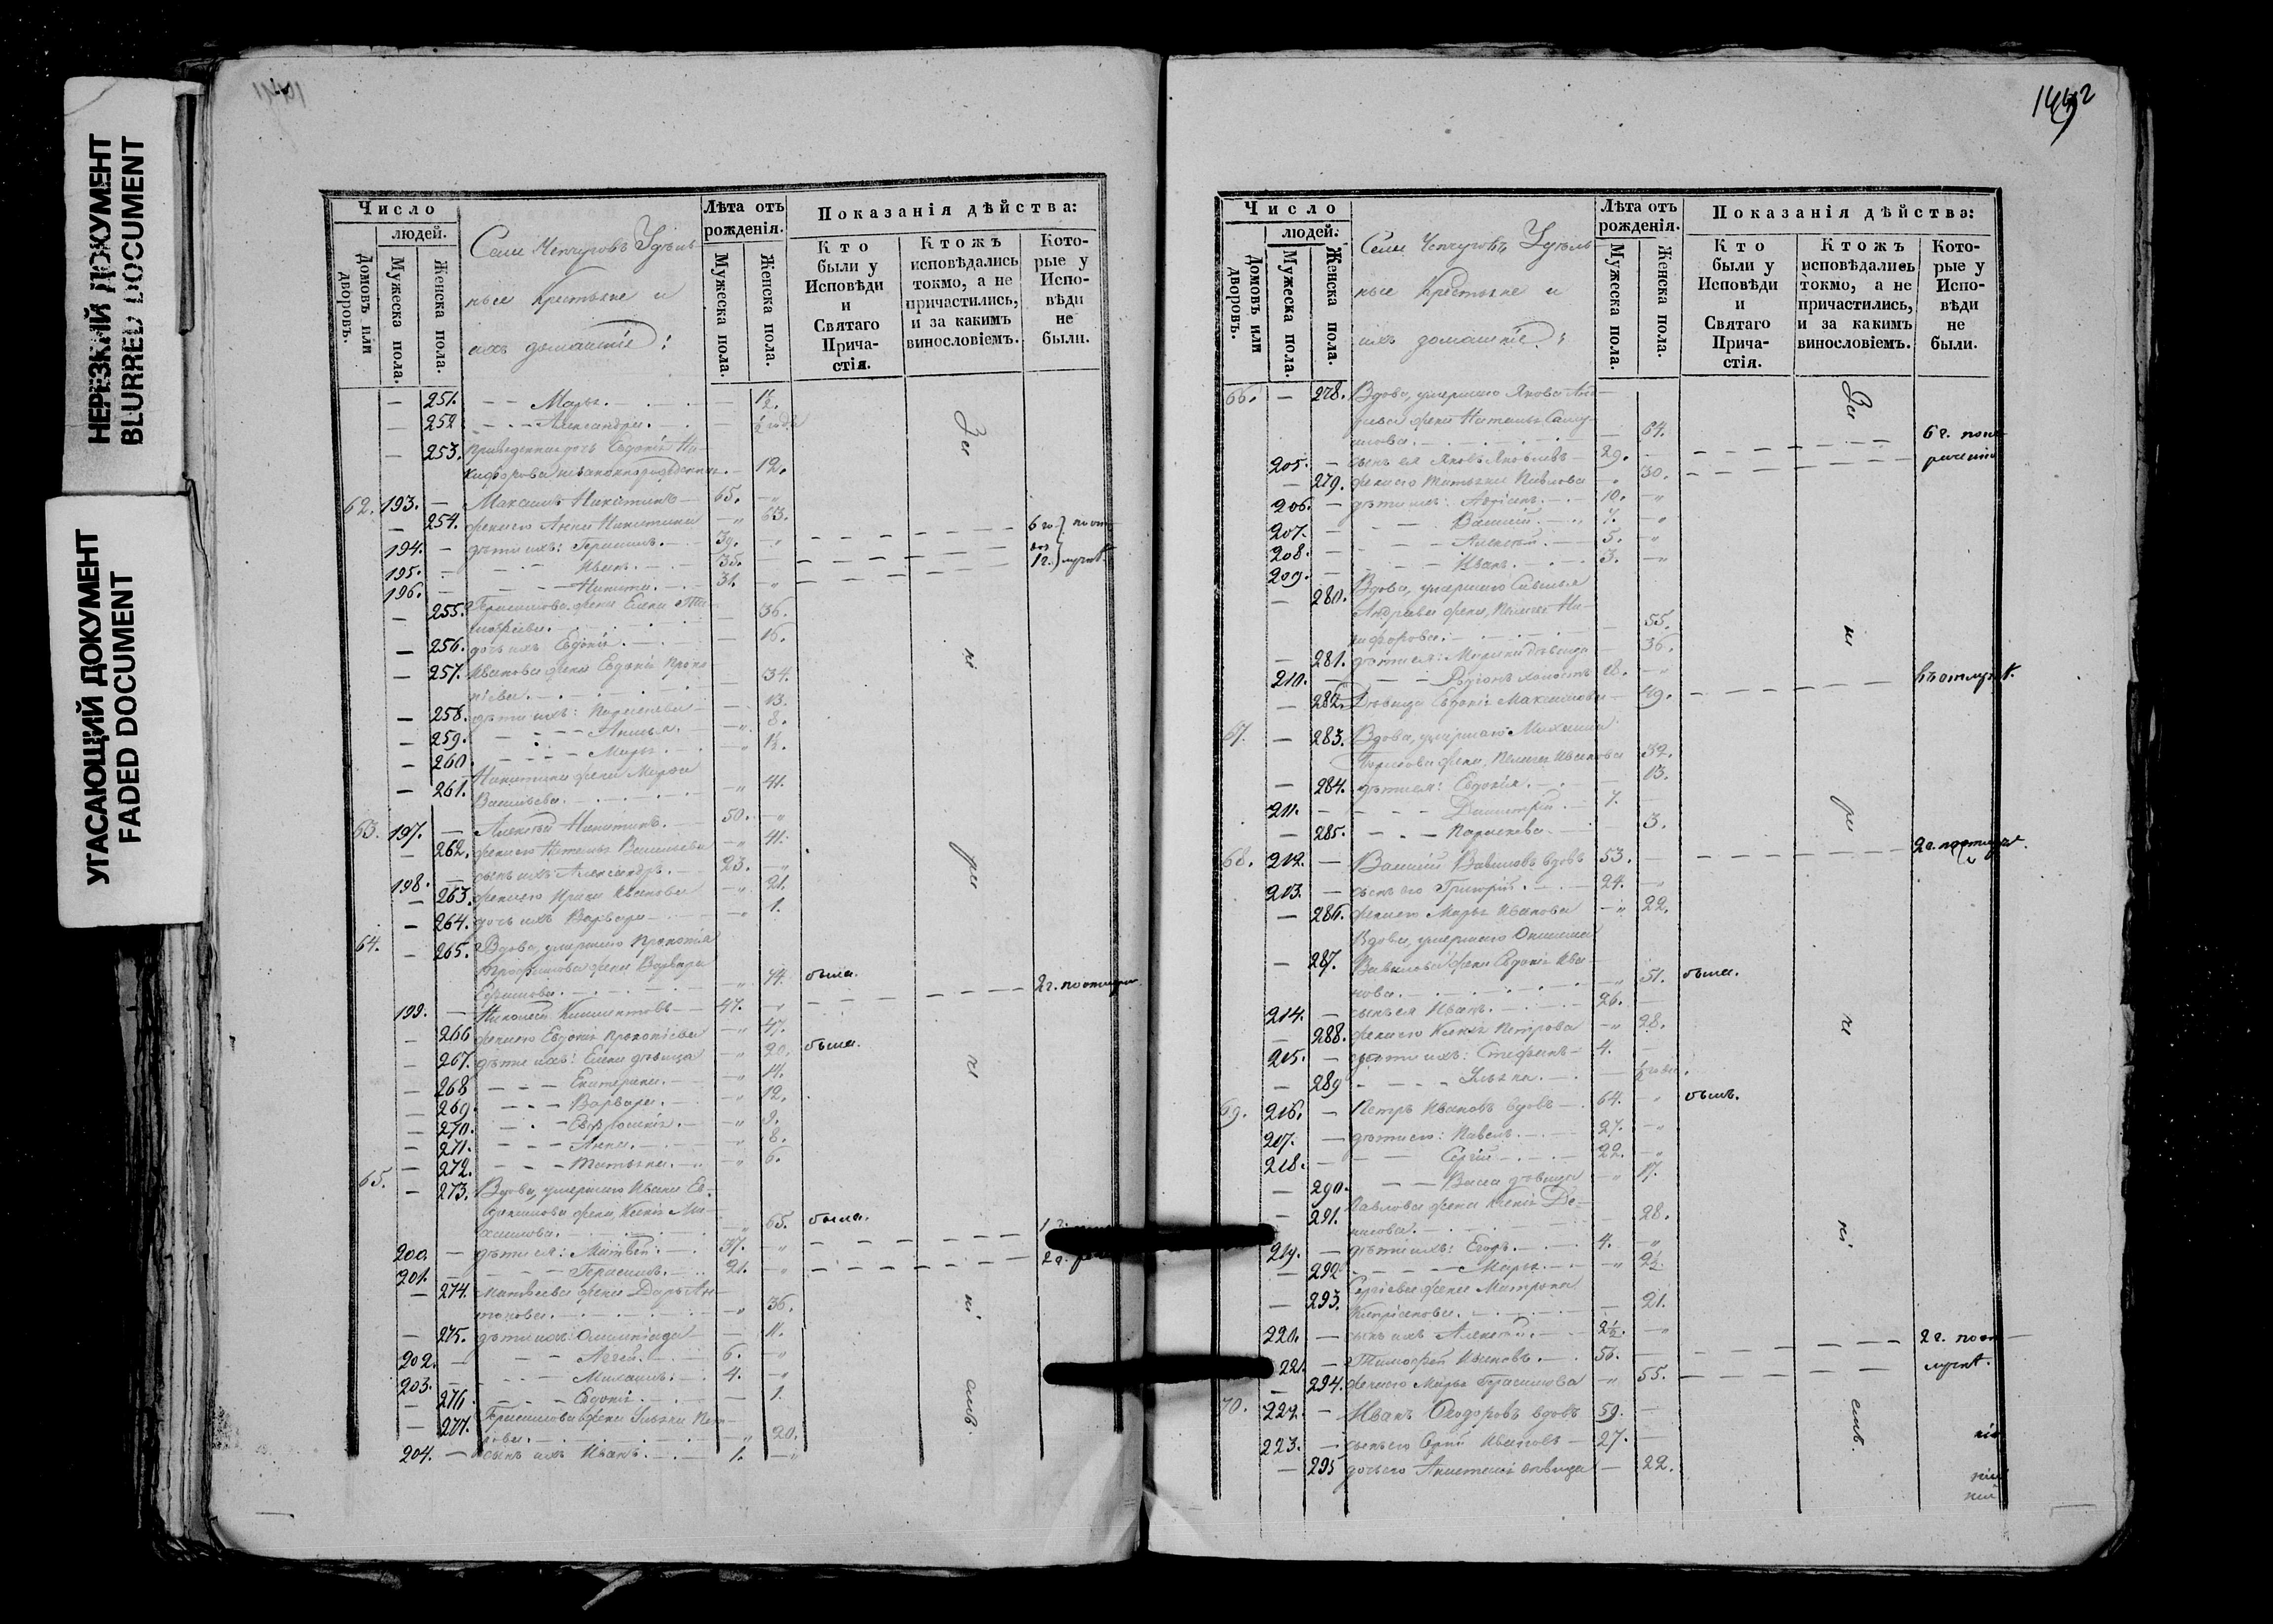 НЕРЕЗКИЙ ДОКУМЕНТ
BLURRED DOCUMENT
УГАСАЮЩИЙ ДОКУМЕНТ
FADED DOCUMENT
Число
людей.
Домовъ или дворовъ.
Мужеска пола.
Женска пола.
Села Чепчуговъ Удѣль
ные Крестьяне и
ихъ домашніе:
Лѣта отъ рожденія.
Мужеска пола.
Женска пола.
Показанія дѣйства:
Кто были у Исповѣди и Святаго Прича-стія.
Ктожъ исповѣдались токмо, а не причастились, и за какимъ винословіемъ.
Кото-рые у Испо-вѣди не были.
— 251. — — Марья. — 1½.
— 252. — — Александра. — ½ года
— 253. приведенная дочь Евдокія Ни-
кифорова незаконнорожденная. — 12.
62. 193. — Максимъ Никитинъ — 65. — „
— 254. жена его Анна Никитина — „ 63.
194. — дѣти ихъ: Герасимъ. — 39. — „
195. — Иванъ. — 35.
196. — Никита. — 31. — „
— 255. Герасимова жена Елена Ти-
мофѣева. — 36.
— 256. дочь ихъ Евдокія. — 16.
— 257. Иванова жена Евдокія Проко-
піева. — 34.
— 258. дѣти ихъ: Параскева — 13.
— 259. — Анисья. — „ 8.
— 260 — Марья. — „ 1½.
— 261. Никитина жена Марфа
Васильева. — „ 41.
63. 197. — Алексѣй Никитинъ. — 50. — „
— 262. жена его Наталья Васильева — „ 41.
198. — сынъ ихъ Александръ. — 23. — „
— 263. жена его Ирина Иванова — „ 21.
— 264. дочь ихъ Варвара — „ 1.
64. — 265. Вдова, умершаго Прокопія
Трофимова жена Варвара
Ефимова. — „ 74. была.
199. — Николай Климентовъ — 47. — „ 2 г. по отлучк
— 266 жена его Евдокія Прокопіева — „ 47.
— 267. дѣти ихъ: Елена дѣвица — „ 20. была.
— 268 — Екатерина. — „ 14.
— 269. — Варвара. — „ 12.
— 270. — Евфросинія. — „ 9.
— 271. — Анна. — „ 8.
— 272. — Татьяна. — „ 6.
65. — 273. Вдова, умершаго Ивана Ев-
докимова жена, Ксенія Ма-
ксимова. — „ 65. была.
200. — дѣти ея: Матвѣй. — 37. — „
201. — Герасимъ. — 21. — „
— 274. Матвѣева жена Дарья Ан-
тонова. — „ 36.
— 275. дѣти ихъ: Олимпіада — 11.
202. — 6. — „
203. — Михаилъ. — 4. — „
— 276. — Евдокія — 1.
— 277. Герасимова жена Ульяна Пет-
рова. — „ 20.
204. — сынъ ихъ Иванъ. — 1. — „
1442
Число
людей.
Домовъ или дворовъ.
Мужеска пола.
Женска пола.
Села Чепчуговъ Удѣль
ные Крестьяне и
ихъ домашніе:
Лѣта отъ рожденія.
Мужеска пола.
Женска пола.
Показанія дѣйства:
Кто были у Исповѣди и Святаго Прича-стія.
Ктожъ исповѣдались токмо, а не причастились, и за какимъ винословіемъ.
Кото-рые у Испо-вѣди не были.
66. — 278. Вдова, умершаго Якова Ан-
жена Наталья Саму-
илова. — 64.
205. — сынъ ея Яковъ Яковлевъ — 29. — 6 г.
— 279. жена его Татьяна Павлова — „ 30.
206. — дѣти ихъ: — 10. — „
207. — Василій. — 7. — „
208. — Алексѣй. — 5. — „
209. — Иванъ. — 3. — „
— 280. Вдова, умершаго Савелья
Андреева жена, Пелагея Ни-
кифорова. — 55.
— 281. дѣти ея: Марина дѣвица — 36.
210. — Родіонъ холостъ 18. — „ въ отлучк.
— 282. Дѣвица Евдокія Максимова — 49.
67. — 283. Вдова, умершаго Михаила
Борисова жена, Пелагея Иванова 32.
— 284. дѣти ея: Евдокія. — 13.
211. — Димитрій. — 7. —
— 285. — Параскева. — 3.
68. 212. — Василій Вавиловъ вдовъ 53. — 2 г. по отлуч
213. — сынъ его Григорій. — 24. — „
— 286. жена его Марья Иванова — „ 22.
— 287. Вдова, умершаго Онисима
Вавилова жена Евдокія Ива-
нова. — „ 51. была.
214. — сынъ ея Иванъ. — 26. —
— 288. жена его Ксенія Петрова — „ 28.
215. — дѣти ихъ: Стефанъ — 4. —
— 289 — Ульяна. — ½ года.
69. 216. — Петръ Ивановъ вдовъ — 64. — „ былъ.
217. — дѣти его: Павелъ. — 27. — „
218. — Сергій — 22. — „
— 290. — Васса дѣвица — „ 17.
— 291. Павлова жена Ксенія Де-
нисова. — 28.
219. — дѣти ихъ: Егоръ. — 4. — „
— 292 — Марья. — „ 2½.
— 293. Сергіева жена Матрона
Кипріанова. — 21.
220. — сынъ ихъ Алексѣй. — 2½. — „
221. — Тимофей Ивановъ. — 56. — 2 г. по от-
— 294. жена его Марья Герасимова — „ 55. лучк.
70. 222. — Иванъ Ѳеодоровъ вдовъ 59. —
223. — сынъ его Ивановъ — 27. —
— 295 дочь его Анастасія дѣвица — 22.